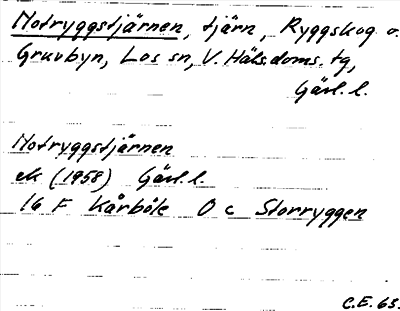 Notryggstjärnen, tjärn, Ryggskog o.
Gruvbyn, Los sn, V. Häls. doms. tg,
Gävl. l.
Notryggstjärnen
ek (1958) Gävl. l.
16 F Kårböle O c Storryggen
C.E. 65.